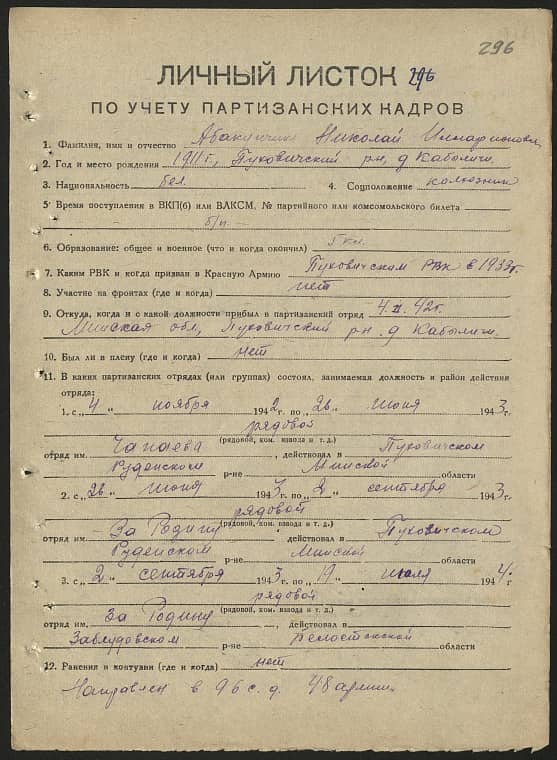 296
ЛИЧНЫЙ ЛИСТОК 296
ПО УЧЕТУ ПАРТИЗАНСКИХ КАДРОВ
1. Фамилия, имя и отчество Абакунчик Николай Илларионович
2. Год и место рождения 1911 г., Пуховичский рн. д Кабыличи
3. Национальность бел. 4. Соцположение колхозник
5. Время поступления в ВКП(б) или ВЛКСМ, № партийного или комсомольского билета
б/п. –
6. Образование: общее и военное (что и когда окончил) 5 кл.
7. Каким РВК и когда призван в Красную Армию Пуховичским РВК в 1933 г.
8. Участие на фронтах (где и когда) нет
9. Откуда, когда и с какой должности прибыл в партизанский отряд 4.XI.42 г.
Минская обл, Пуховичский рн. д Кабыличи.
10. Был ли в плену (где и когда) нет
11. В каких партизанских отрядах (или группах) состоял, занимаемая должность и район действия
отряда:
1. с „4“ ноября 1942 г. по „26“ июня 1943 г.
рядовой
(рядовой, ком. взвода и т. д.)
отряд им. Чапаева, действовал в Пуховичском
Руденском р-не Минской области
2. с „26“ июня 1943 г. по „2“ сентября 1943 г.
рядовой
(рядовой, ком. взвода и т. д.)
отряд им. За Родину действовал в Пуховичском
Руденском р-не Минской области
3. с „2“ сентября 1943 г. по „19“ июля 1944 г
рядовой
(рядовой, ком. взвода и т. д.)
отряд им. За Родину, действовал в
Заблудовском р-не Белостокской области
12. Ранения и контузии (где и когда) нет
Направлен в 96 с. д. 48 армии